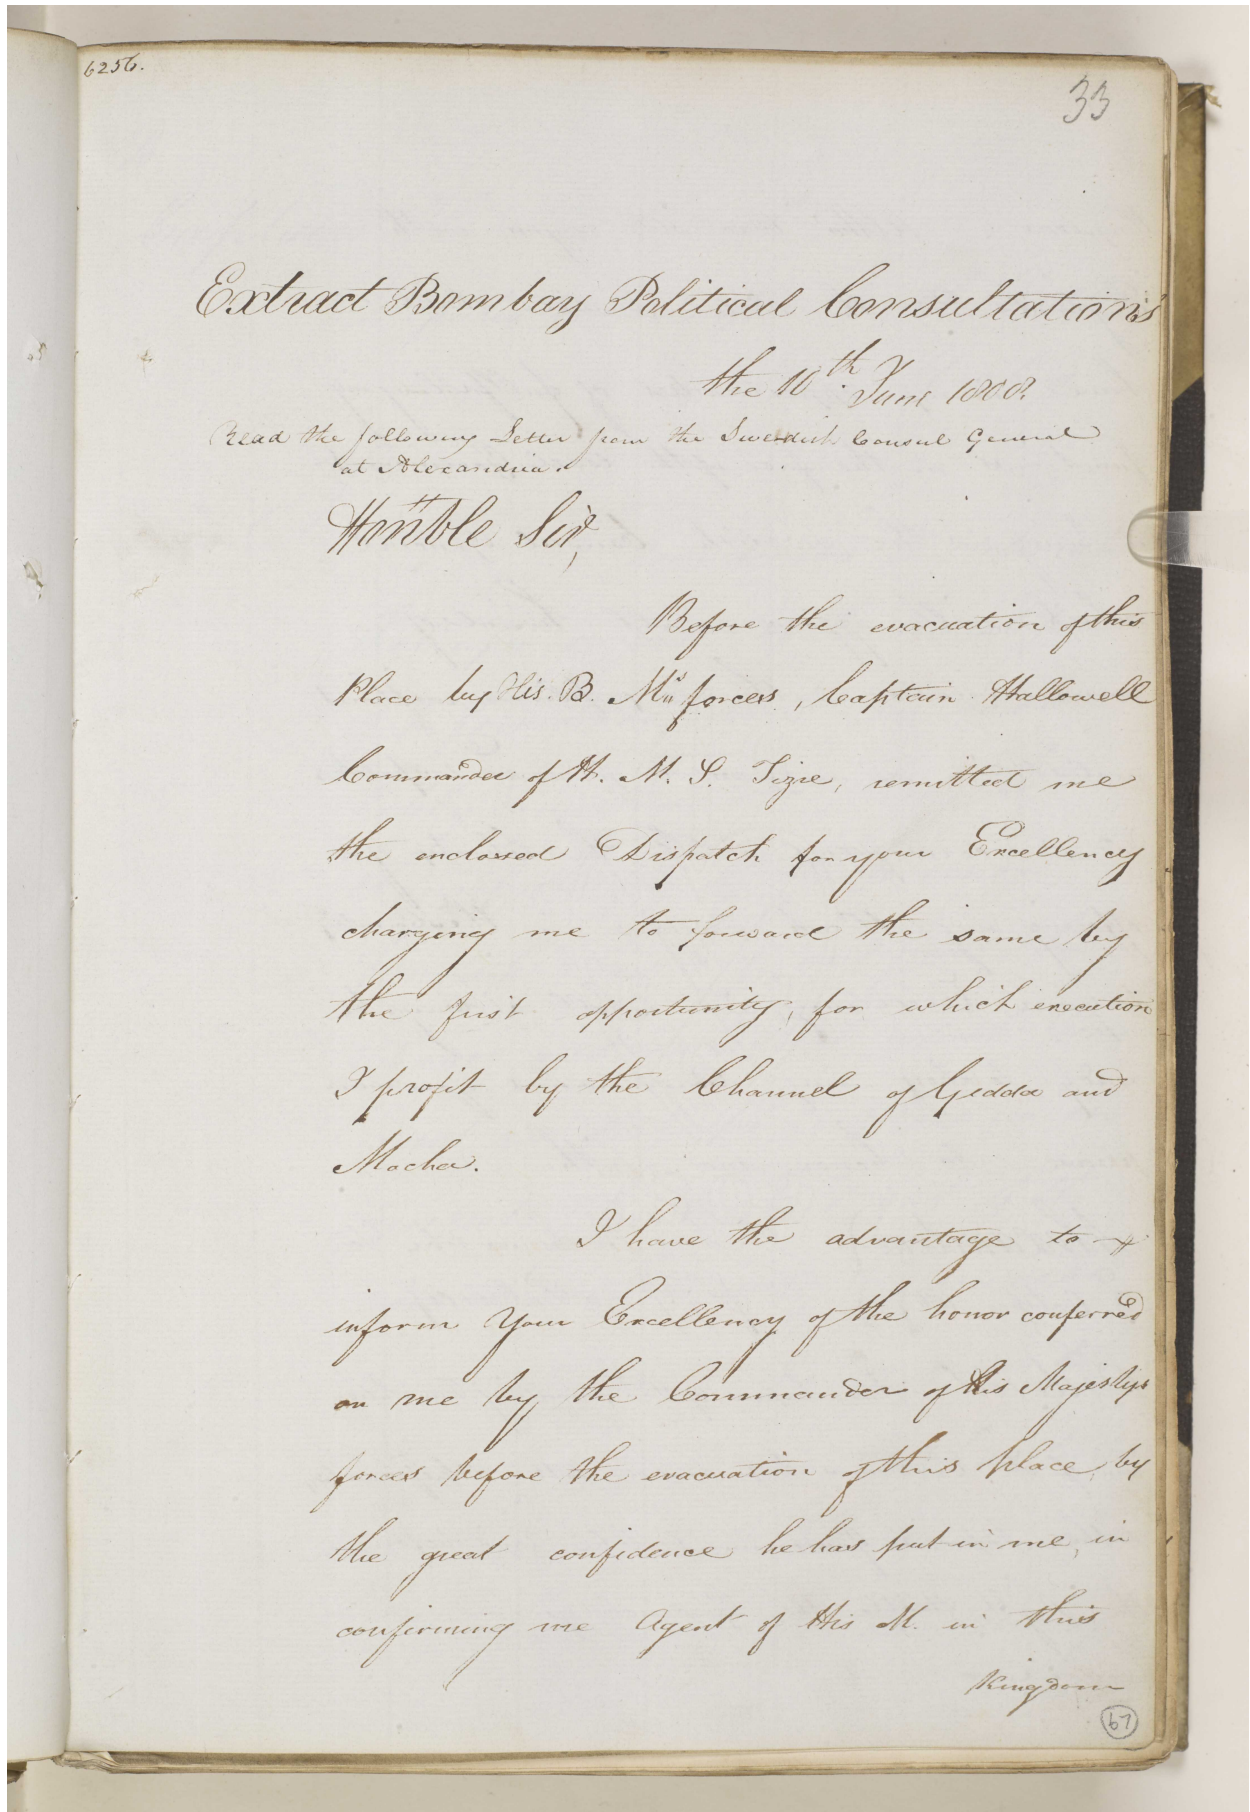 6256.
33
Extract Bombay Political Consultations
the 10th June 1808.
Read the following Letter from the Swedish Consul General
at Alexandria.
Hon'ble Sir,
Before the evacuation of this
Place by His. B. M's forces, Captain Hallowell
Commander of H. M. S. Tigre, remitted me
the enclosed Dispatch for your Excellency
charging me to forward the same by
the first opportunity, for which execution
I profit by the Channel of Gedda and
Mocha.
I have the advantage to
inform Your Excellency of the honor conferred
on me by the Commander of His Majestys
forces before the evacuation of this place, by
the great confidence he has put in me, in
confirming me Agent of His M. in this
Kingdom
67